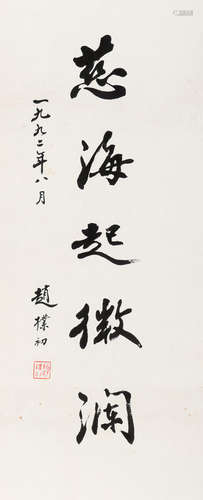 慈海起微澜
一九九二年八月
趙樸初